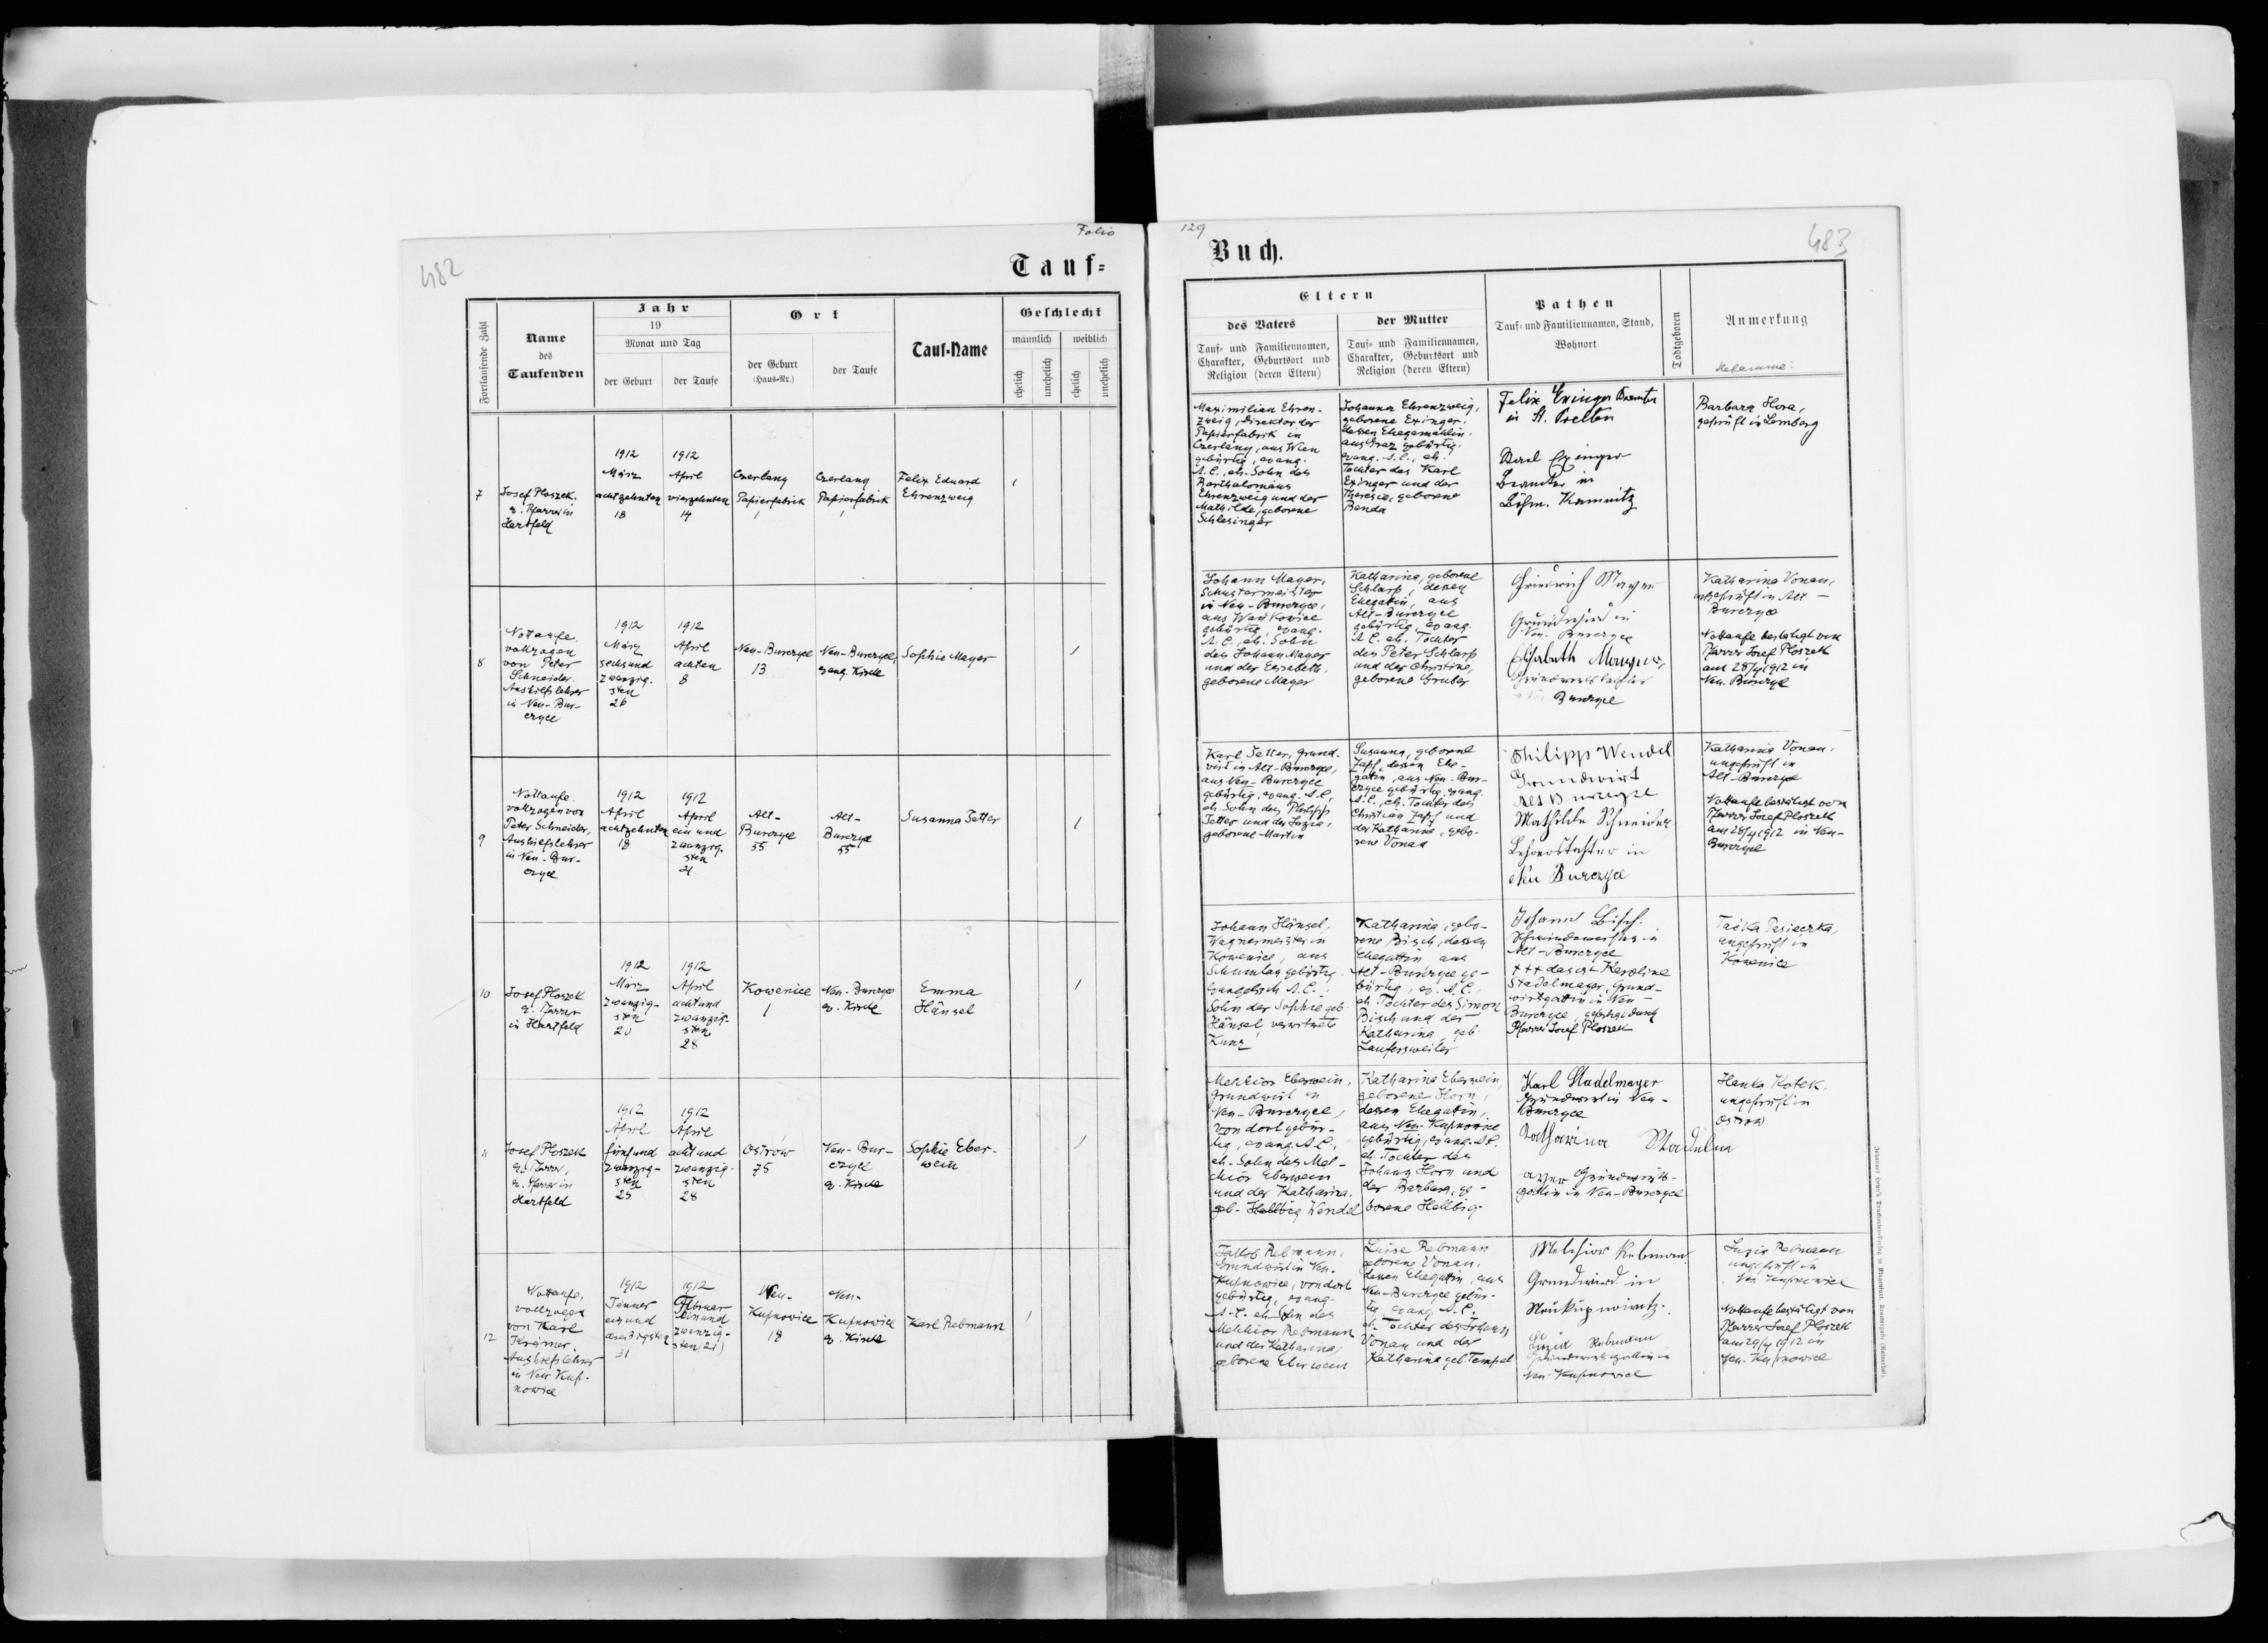 482
Folio
Tauf=
Fortlaufende Zahl
Name
des
Taufenden
Jahr
19
Monat und Tag
der Geburt
der Taufe
Ort
der Geburt
(Haus-Nr.)
der Taufe
Tauf-Name
Geschlecht
männlich
weiblich
ehelich
unehelich
ehelich
unehelich
7
Josef Ploszek.
ev. Pfarrer in
Hartfeld
1912
März
achtzehnten
18
1912
April
vierzehnten
14
Czerlany
Papierfabrik
1
Czerlany
Papierfabrik
1
Felix Eduard
Ehrenzweig
8
Nottaufe
vollzogen
von Peter
Schneider.
Aushilfslehrer
in Neu-Bur-
czyce
1912
März
sechsund
zwanzig-
sten
26
1912
April
achten
8
Neu-Burczyce
13
Neu-Burczyce,
evang. Kirche
Sophie Mayer
9
Nottaufe
vollzogen von
Peter Schneider,
Aushilfslehrer
in Neu-Bur-
czyce
1912
April
achtzehnten
18
1912
April
ein und
zwanzig-
sten
21
Alt-
Burczyce
55
Alt-
Burczyce
55
Susanna Jetter
10
Josef Ploszek
ev. Pfarrer
in Hartfeld
1912
März
zwanzig-
sten
20
1912
April
achtund
zwanzig-
sten
28
Kowenice
1
Neu-Burczyce
ev. Kirche
Emma
Hänsel
11
Josef Ploszek
ev. Pfarrer,
ev. Pfarrer in
Hartfeld
1912
April
fünfund
zwanzig-
sten
25
1912
April
achtund
zwanzig-
sten
28
Ostrow
75
Neu-Bur-
czyce
ev. Kirche
Sophie Eber-
wein
12
Nottaufe,
vollzogen
von Karl
Krämer.
Aushilfslehrer
in Neu Kup-
nowice
1912
Jänner
ein und
dreissigsten
31
1912
Februar
ein und
zwanzig-
sten 21)
Neu-
Kupnowice
18
Neu-
Kupnowice
ev. Kirche
Karl Rebmann
129
Buch.
483
Eltern
des Vaters
Tauf= und Familiennamen,
Charakter, Geburtsort und
Religion (deren Eltern)
der Mutter
Tauf= und Familiennamen,
Charakter, Geburtsort und
Religion (deren Eltern)
Pathen
Tauf= und Familiennamen, Stand,
Wohnort
Todtgeboren
Anmerkung
Hebamme:
Maximilian Ehren-
zweig, Direktor der
Papierfabrik in
Czerlany, aus Wien
gebürtig, evang.
A.C., eh. Sohn des
Bartholomäus
Ehrenzweig und der
Mathilde, geborene
Schlesinger
Johanna Ehrenzweig,
geborene Exinger,
dessen Ehegemahlin
aus Graz gebürtig.
evang. A.C., eh.
Tochter des Karl
Exinger und der
Theresia, geborene
Benda
Felix Exinger Beamter
in St. Poelten
Karl Exinger
Beamter in
Böhm. Kamnitz
Barbara Hora,
geprüft in Lemberg
Johann Mayer,
Schustermeister
in Neu-Burczyce,
gebürtig, evang.
A.C. eh. Sohn
des Johann Mayer
und der Elisabeth.
geborene Mayer
Katharina, geborene
Schlarp, dessen
Ehegatin, aus
Alt-Burczyce
gebürtig, evang.
A.C. eh. Tochter
des Peter Schlarp
und der Christine,
geborene Gruber
Friedrich Mayer
Grundwird in
Neu-Burczyce
Elisabeth
Burczyce
Katharina Vonau,
ungeprüft in Alt-
Burczyce
Nottaufe bestätigt von
Pfarrer Josef Ploszek
am 28/4 1912 in
Neu-Burczyce
Karl Jetter, Grund-
wirt in Alt-Burczyce,
aus Neu-Burczyce
gebürtig, evang. A.C.,
eh Sohn des Philipp
Jetter und der Luzie,
geborene Martin
Susanna, geborene
Zapf, dessen Ehe-
gatin, aus Neu-Bur-
czyce gebürtig, evang.
A.C., eh. Tochter des
Christian Zapf und
der Katharina, gebo-
rene Vonau
Philipp Wendel
Grundwirt
Alt Burczyce
Mathilde Schneider
Lehrerstochter in
Neu Burczyce
Katharina Vonau.
ungeprüft in
Alt-Burczyce
Nottaufe bestätigt von
Pfarrer Josef Ploszek
am 28/4 1912 in Neu-
Burczyce
Johann Hänsel,
Wagnermeister in
Kowenice, aus
Schumlau gebürtig
Evangelisch A.C.,
Sohn der Sophie geb.
Hänsel, verwitwete
Kunz
Katharina, gebo-
rene Bisch, dessen
Ehegattin aus
Alt-Burczyce ge-
bürtig, ev. A.C.,
eh. Tochter des Simon
Bisch und der
Katharina, geb.
Laufersweiler
Johann Bisch.
Schmiedemeister in
Alt-Burczyce
+++ das ist Karoline
Stadelmayer, Grund-
wirtsgattin in Neu-
Burczyce, gefertigt durch
Pfarrer Josef Ploszek
ungeprüft in
Kowenice
Melchior Eberwein,
Grundwirt in
Neu-Burczyce,
von dort gebür-
tig, evang. A.C.,
eh. Sohn des Mel-
chior Eberwein
und der Katharina.
geb. Hellbig Wendel
Katharina Eberwein,
geborene Horn,
dessen Ehegattin,
aus Neu-Kupnowice
gebürtig, evang. A.C.
eh. Tochter des
Johann Horn und
der Barbara, ge-
borene Hellbig.
Karl Stadelmayer
Grundwirt in Neu-
Burczyce
Katharina Stadelm
ayer Grundwirts-
gattin in Neu-Burczyce
Hanka Kotek,
ungeprüft in
Ostrow
Jakob Rebmann,
Grundwirt in Neu-
Kupnowice, von dort
gebürtig, evang.
A.C. eh. Sohn des
Melchior Rebmann
und der Katharina,
geborene Eberwein
Luise Rebmann
geborene Vonau,
dessen Ehegattin, aus
Neu-Burczyce gebür-
tig, evang. A.C.,
eh. Tochter des Johann
Vonau und der
Katharina geb. Tempel
Melchior Rebmann
Grundwird in
Neukupnowitz.
Luzia Rebmann
Grundwirtsgattin in
Neu-Kupnowice
Luzie Rebmann
ungeprüft in
Neu Kupnowice
Nottaufe bestätigt von
Pfarrer Josef Ploszek
am 29/4 1912 in
Neu-Kupnowice